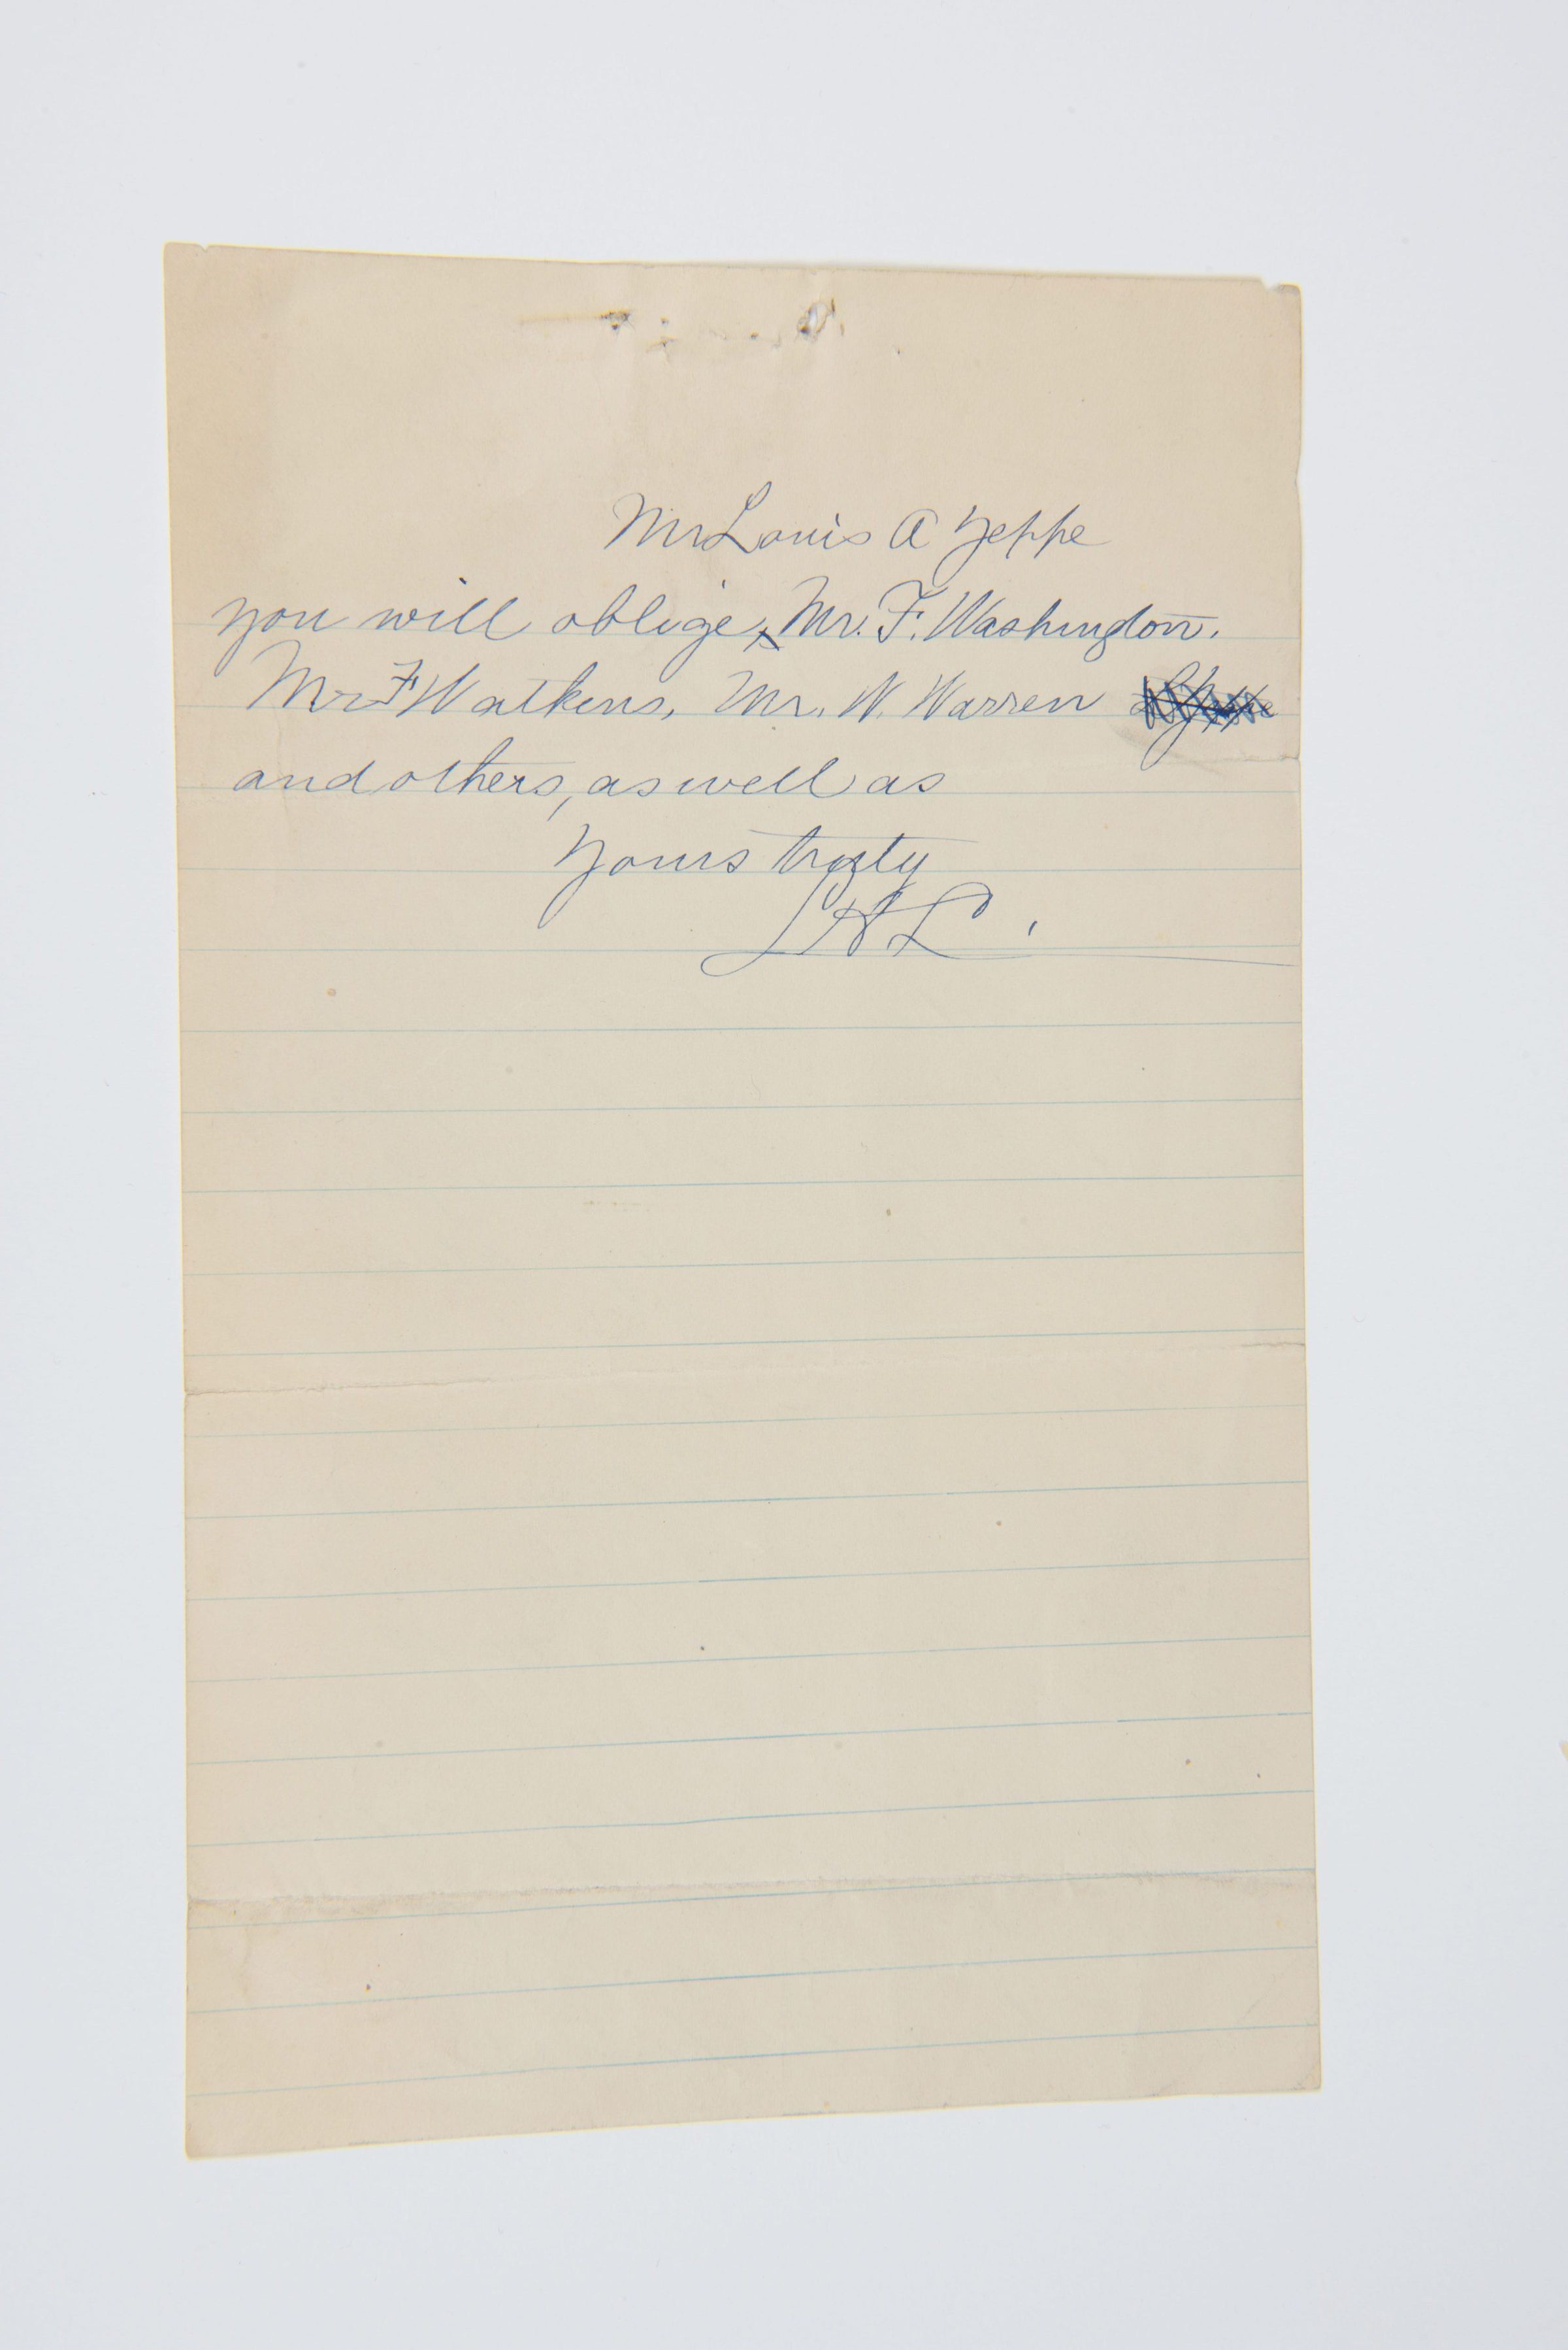 Mr Louis A Yeppe
you will oblige, Mr. F. Washington.
Mr F Watkins, Mr. W. Warren
and others, as well as
Yours truly